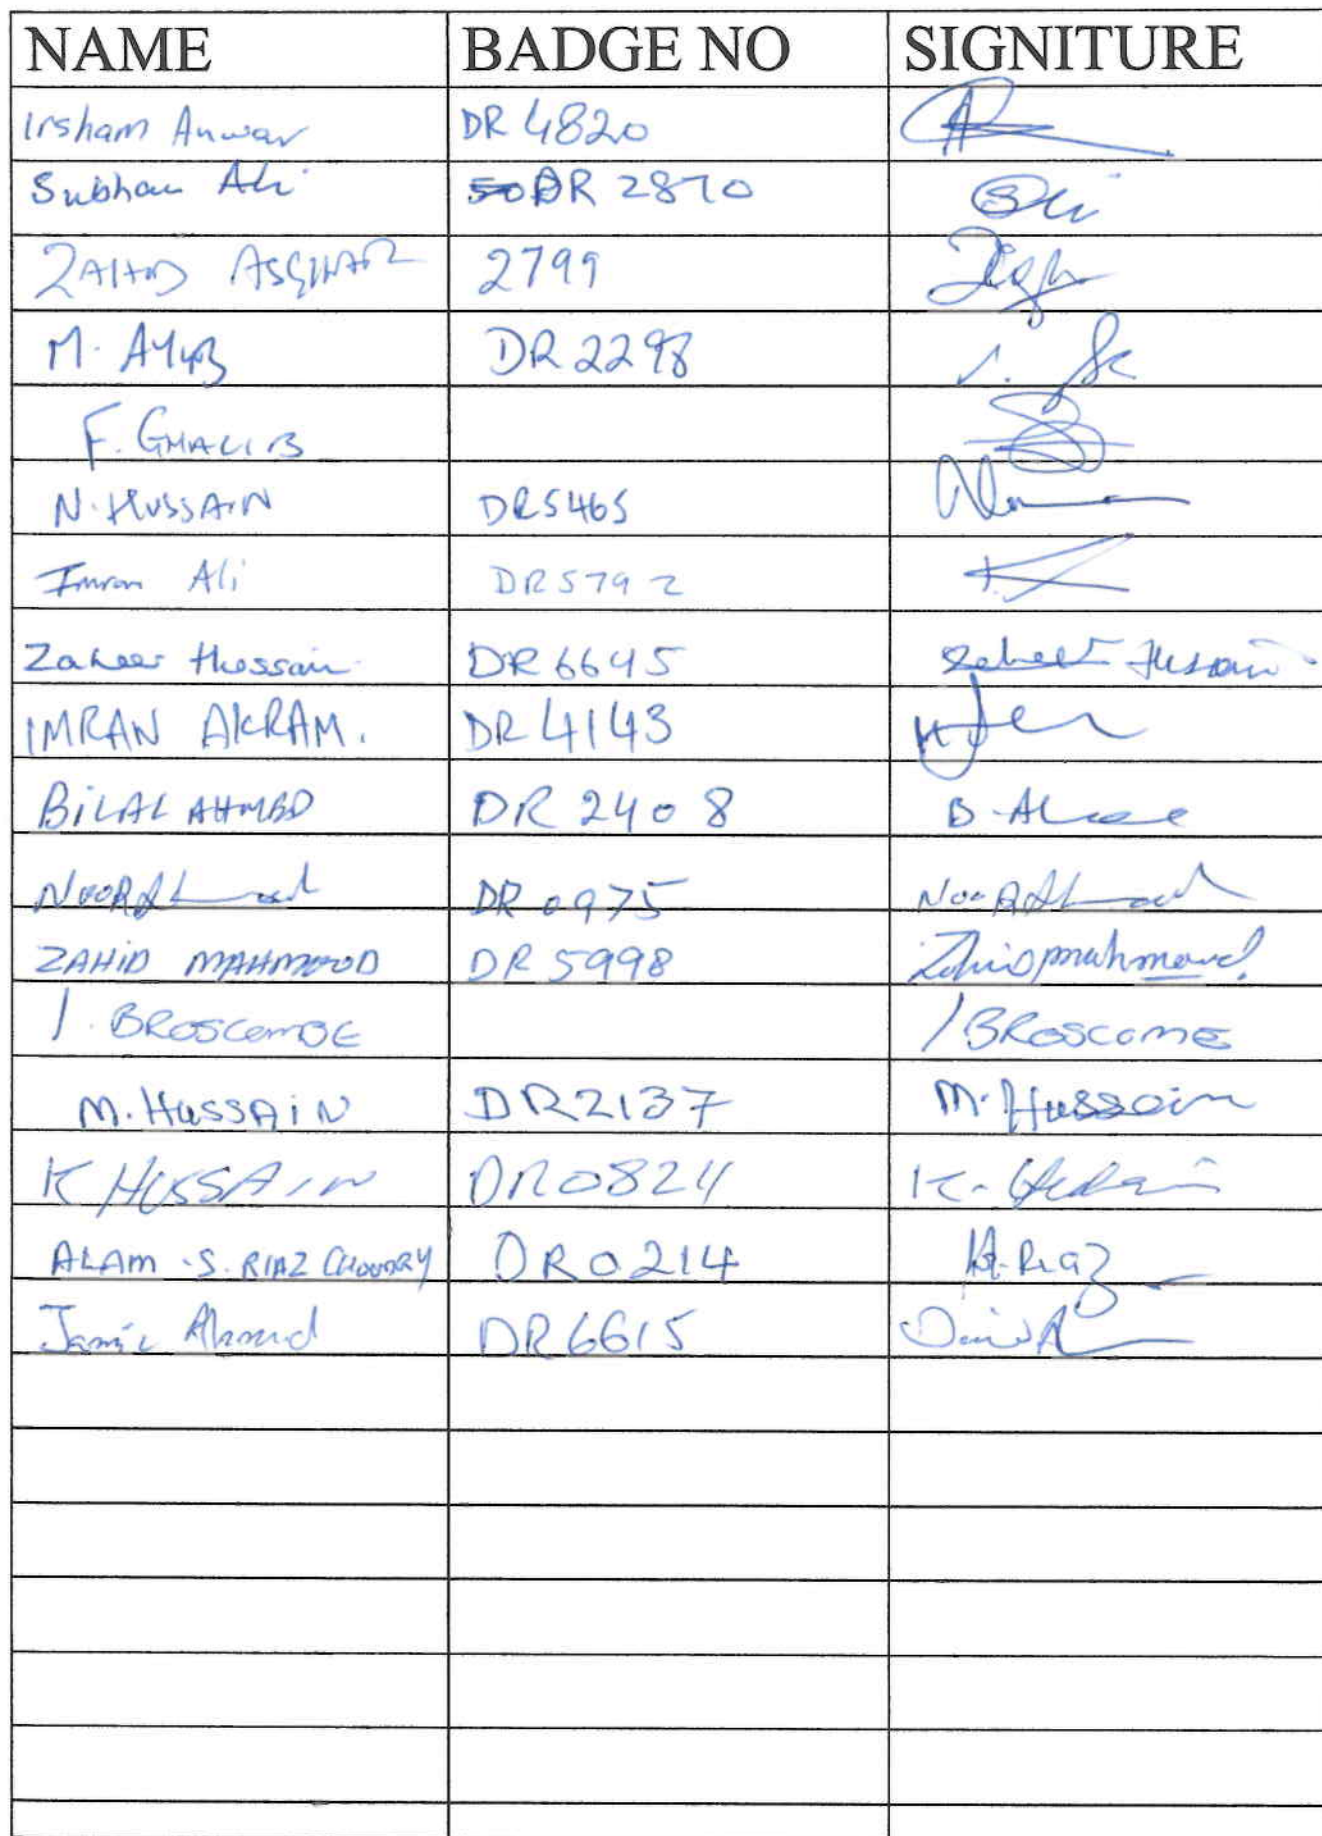 NAME BADGE NO SIGNITURE
Irsham Anwar DR 4820
Subhan Ali DR 2870
ZAHID ASGHAR 2799
M. AYUB DR 2298
F. GHALIB
N. HUSSAIN DR5465
Imran Ali DR5792
Zaheer Hussain DR 6645 Zaheer Hussain
IMRAN AKRAM. DR 4143
BILAL AHMED DR 2408
NOOR Ahmad DR 0975 NOOR Ahmad
ZAHID MAHMOOD DR 5998 Zahid mahmood
I. BROSCOMBE I BROSCOME
M. HUSSAIN DR2137 M. Hussain
K HUSSAIN DR0824 K. Hussain
ALAM .S. RIAZ CHOUDRY DR0214 A. Riaz
Jamil Ahmed DR6615